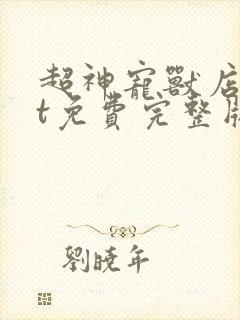 超神寵獸店
t免費完整版
劉曉年